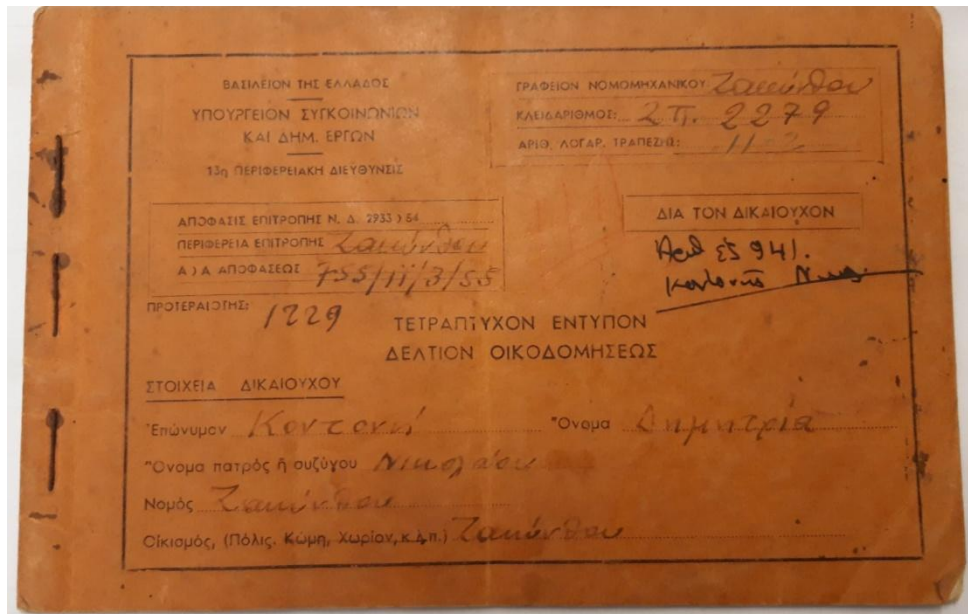 ΒΑΣΙΛΕΙΟΝ ΤΗΣ ΕΛΛΑΔΟΣ
ΥΠΟΥΡΓΕΙΟΝ ΣΥΓΚΟΙΝΩΝΙΩΝ
ΚΑΙ ΔΗΜ. ΕΡΓΩΝ
13η ΠΕΡΙΦΕΡΕΙΑΚΗ ΔΙΕΥΘΥΝΣΙΣ
ΓΡΑΦΕΙΟΝ ΝΟΜΟΜΗΧΑΝΙΚΟΥ Ζακύνθου
ΚΛΕΙΔΑΡΙΘΜΟΣ: 2 Π. 2279
ΑΡΙΘ. ΛΟΓΑΡ. ΤΡΑΠΕΖΗΣ: 11-2
ΑΠΟΦΑΣΙΣ ΕΠΙΤΡΟΠΗΣ Ν. Δ. 2933)54
ΠΕΡΙΦΕΡΕΙΑ ΕΠΙΤΡΟΠΗΣ Ζακύνθου
Α)Α ΑΠΟΦΑΣΕΩΣ 755/11/3/55
ΔΙΑ ΤΟΝ ΔΙΚΑΙΟΥΧΟΝ
941.
ΠΡΟΤΕΡΑΙΟΤΗΣ: 1229
ΤΕΤΡΑΠΤΥΧΟΝ ΕΝΤΥΠΟΝ
ΔΕΛΤΙΟΝ ΟΙΚΟΔΟΜΗΣΕΩΣ
ΣΤΟΙΧΕΙΑ ΔΙΚΑΙΟΥΧΟΥ
Ἐπώνυμον Κοντονή Ὄνομα Δημητρία
Ὄνομα πατρός ἤ συζύγου Νικολάου
Νομός Ζακύνθου
Οἰκισμός, (Πόλις, Κώμη, Χωρίον, κ.λ.π.) Ζακύνθου